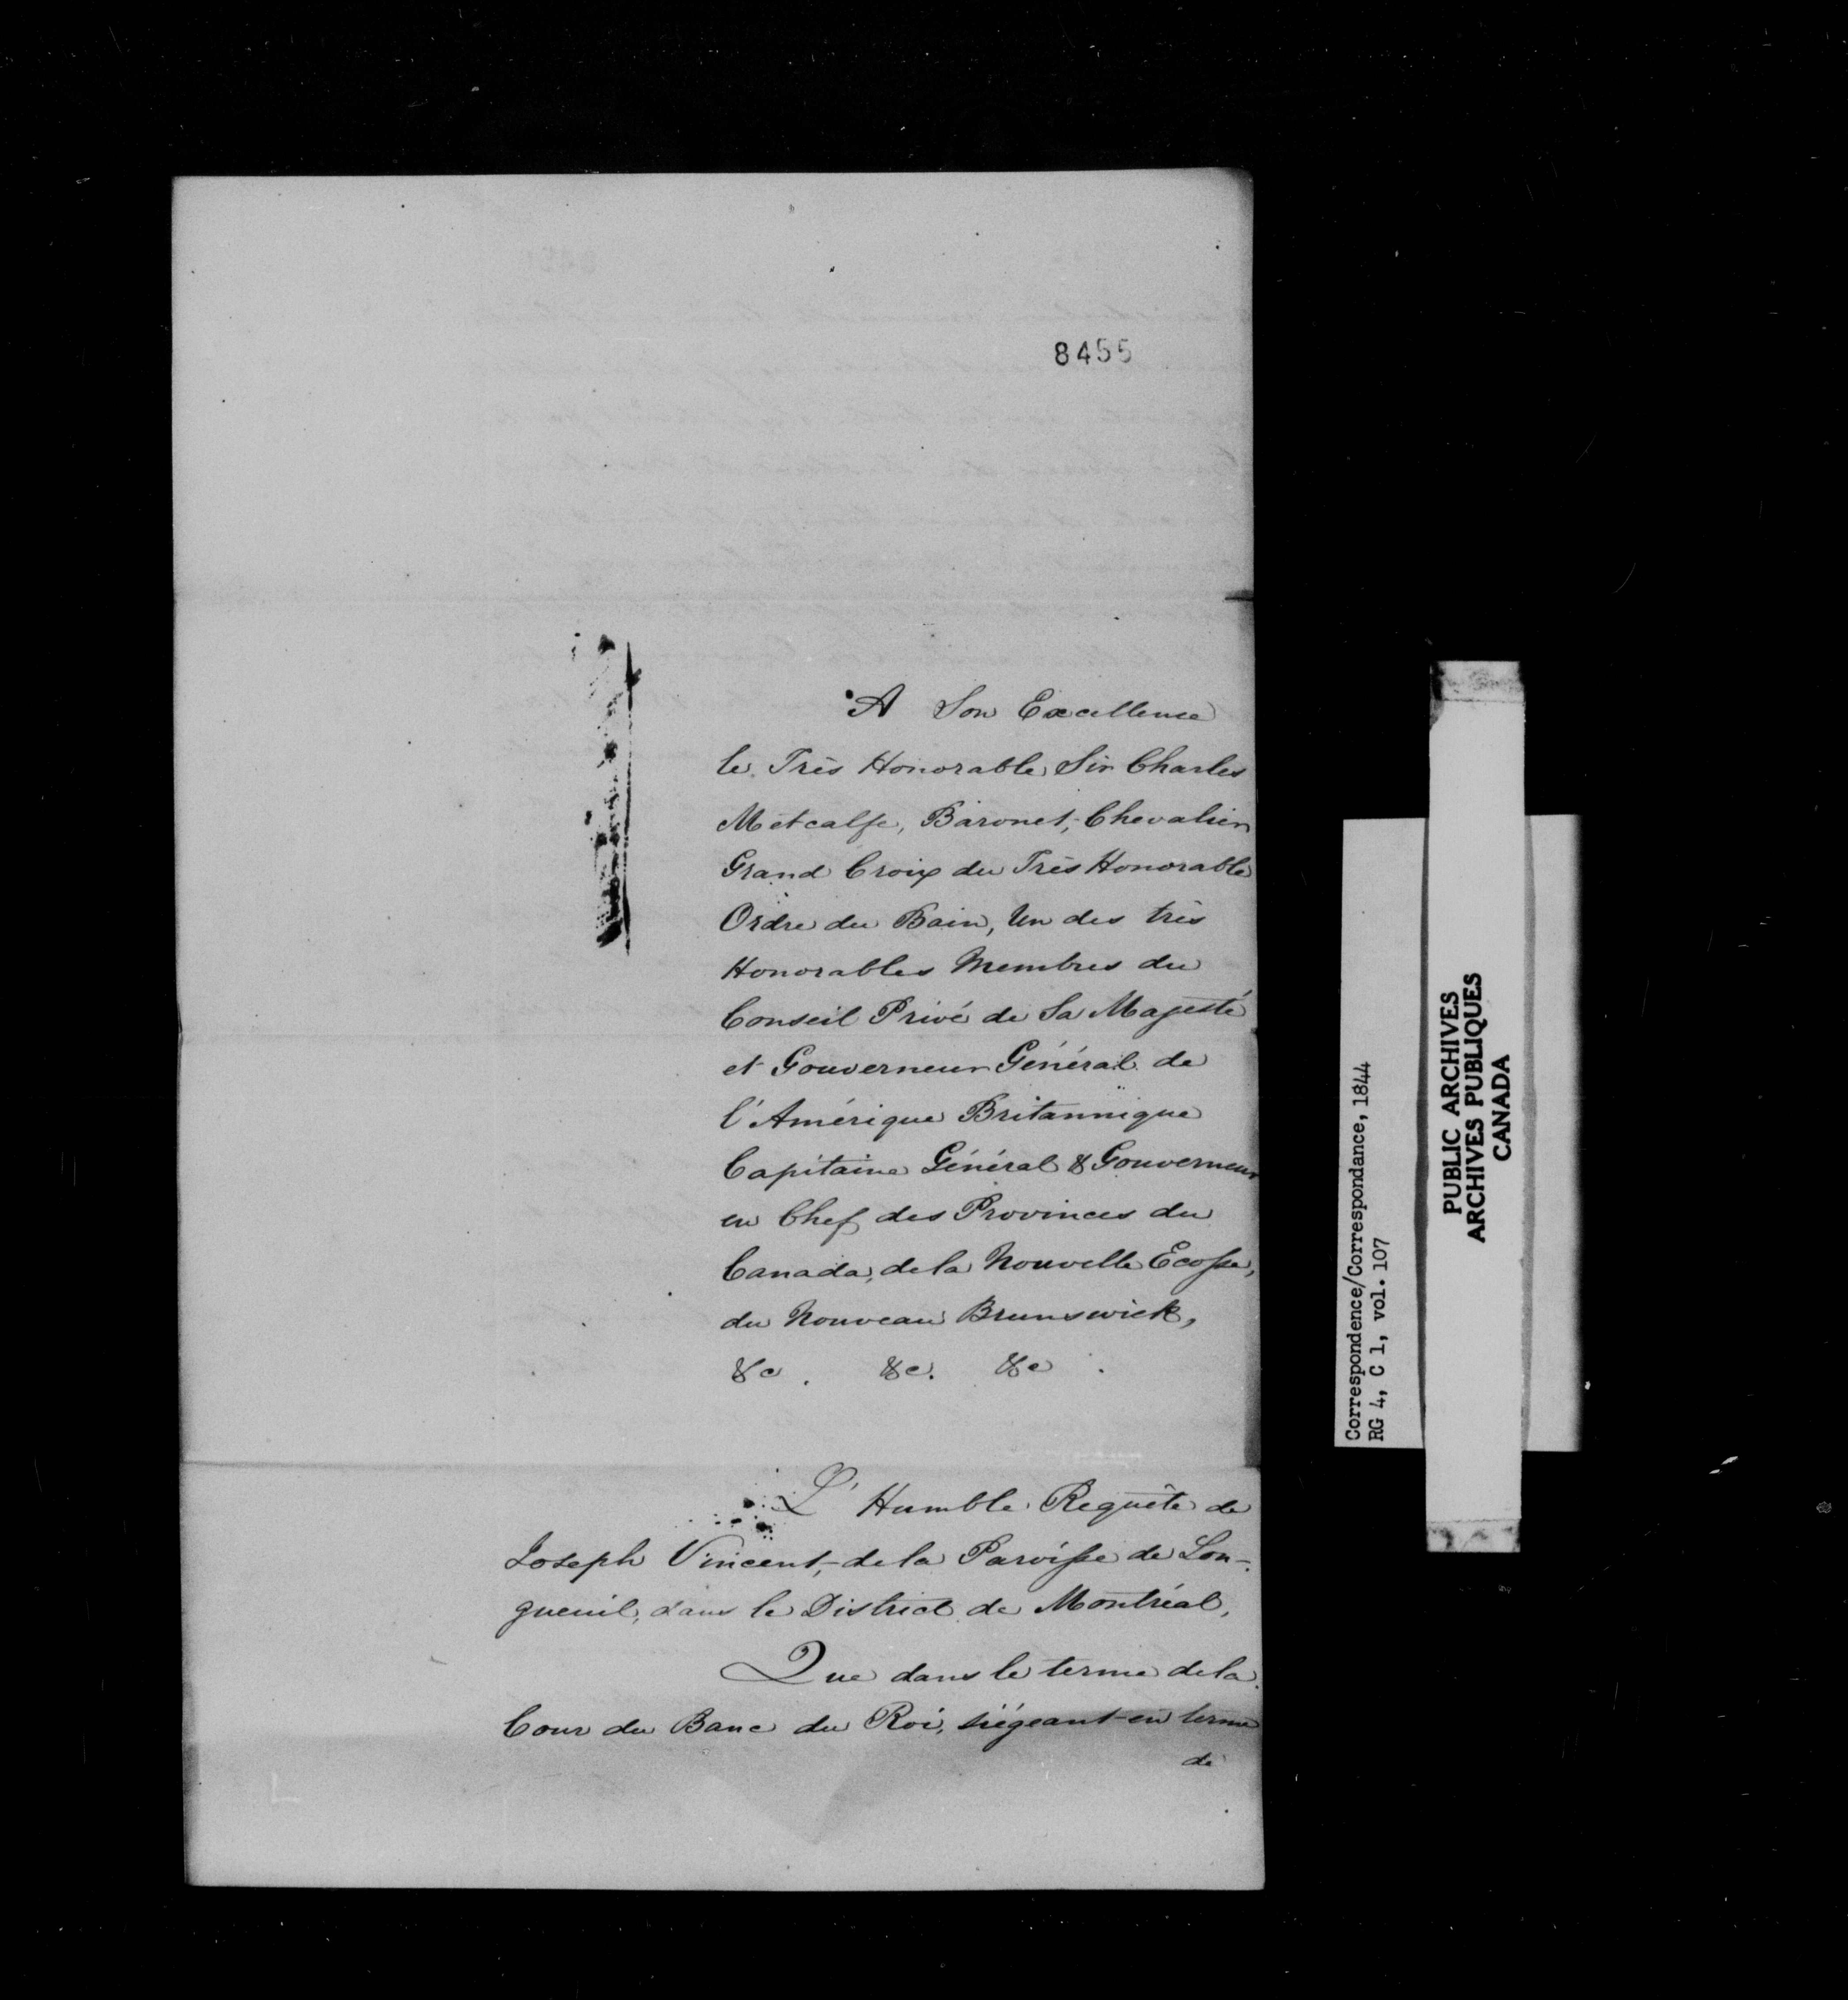 8455
A Son Excellence
le Très Honorable Sir Charles
Metcalfe, Baronet, Chevalier
Grand Croix du Très Honorable
Ordre du Bain, Un des très
Honorables Membres du
Conseil Privé de Sa Majesté
et Gouverneur Général de
l'Amérique Britannique
Capitaine Général & Gouverneur
en Chef des Provinces du
Canada, de la Nouvelle Ecosse,
du Nouveau Brunswick,
&c. &c. &c.
L'Humble Requête de
Joseph Vincent, de la Paroisse de Lon-
gueuil, dans le District de Montréal,
Que dans le terme de la
Cour du Banc du Roi, siégeant en terme
de
Correspondence/Correspondance, 1844
RG 4, C 1, vol. 107
PUBLIC ARCHIVES
ARCHIVES PUBLIQUES
CANADA